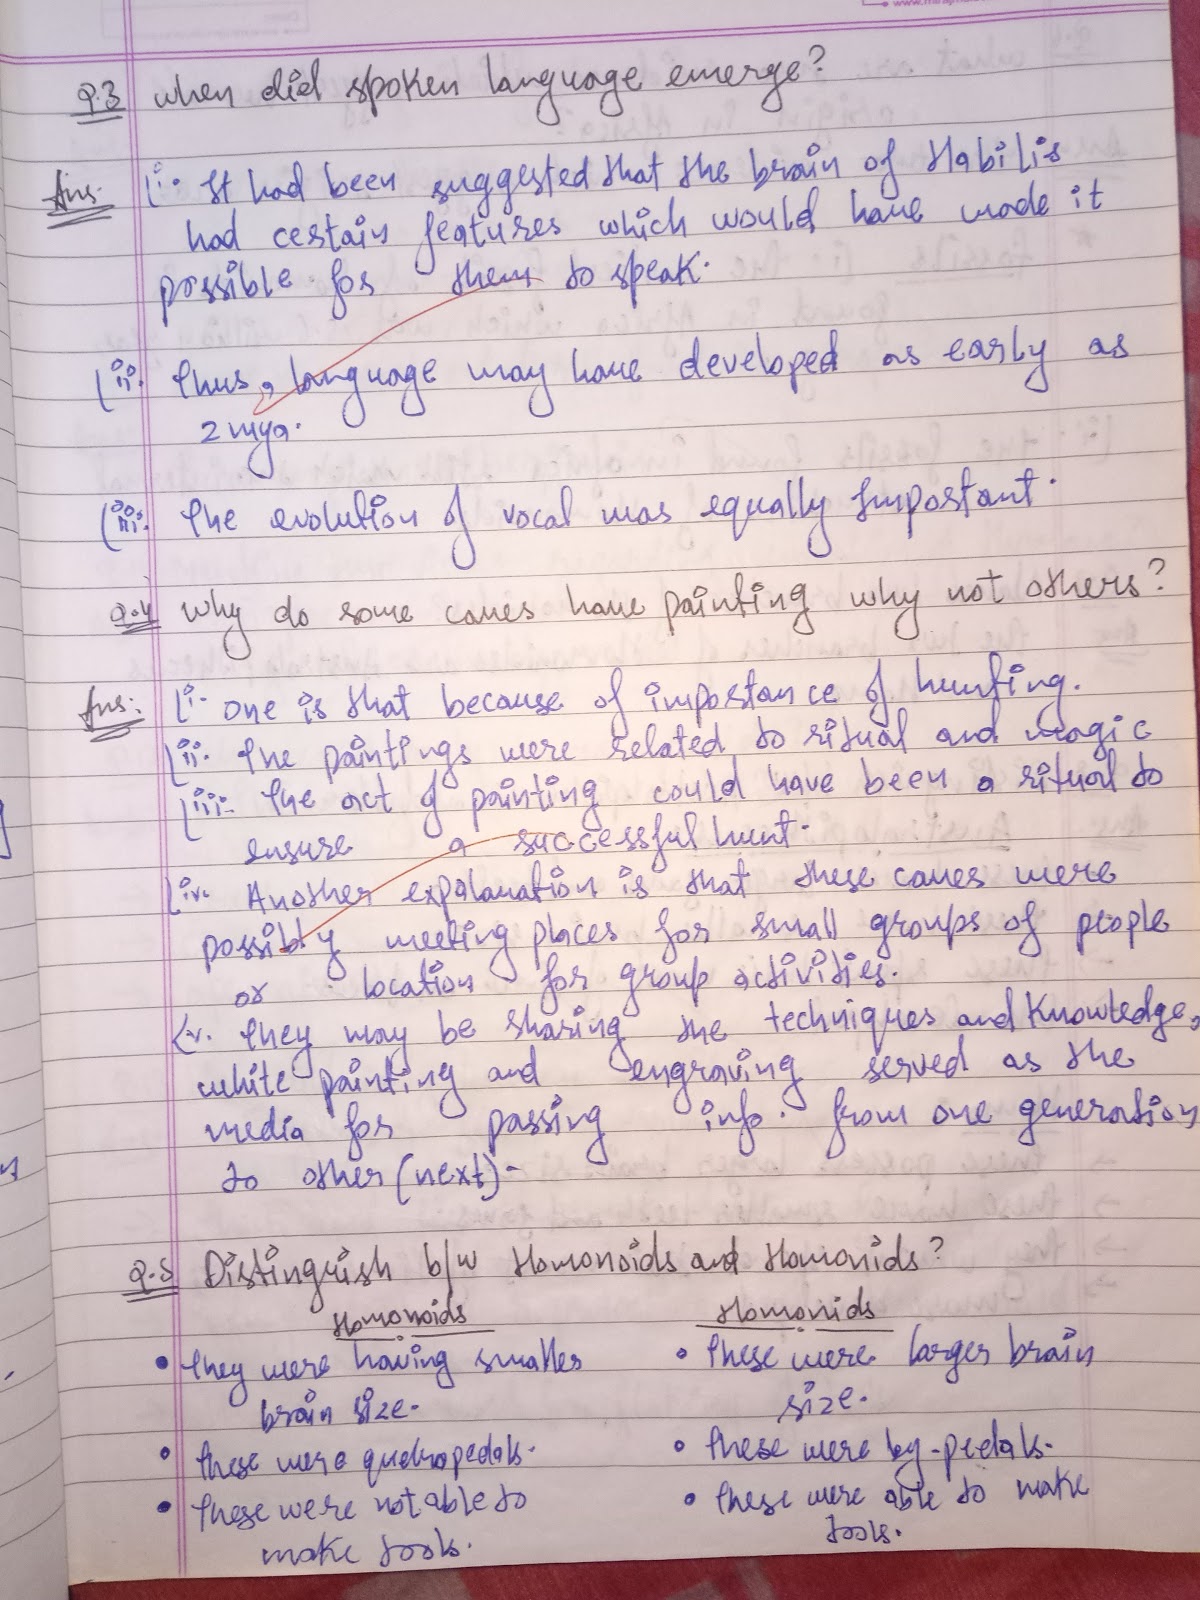 Q.3 when did spoken language emerge?
Ans. (i. It had been suggested that the brain of Habilis
had certain features which would have made it
possible for them to speak.
(ii. Thus, language may have developed as early as
2 mya.
(iii. The evolution of vocal was equally Important.
Q.4 Why do some caves have painting why not others?
Ans. (i. One is that because of importance of hunting.
(ii. The paintings were related to ritual and magic
(iii. The act of painting could have been a ritual to
ensure a successful hunt.
(iv. Another expalanation is that these caves were
possibly meeting places for small groups of people
or location for group activities.
(v. They may be sharing the techniques and Knowledge,
white painting and engraving served as the
media for passing info. from one generation
to other (next)-
Q.5 Distinguish b/w Homonoids and Homonids?
Homonoids Homonids
• They were having smaller • These were larger brain
brain size. size.
• These were quedropedals. • These were by-pedals.
• These were not able to • These were able to make
make tools. tools.